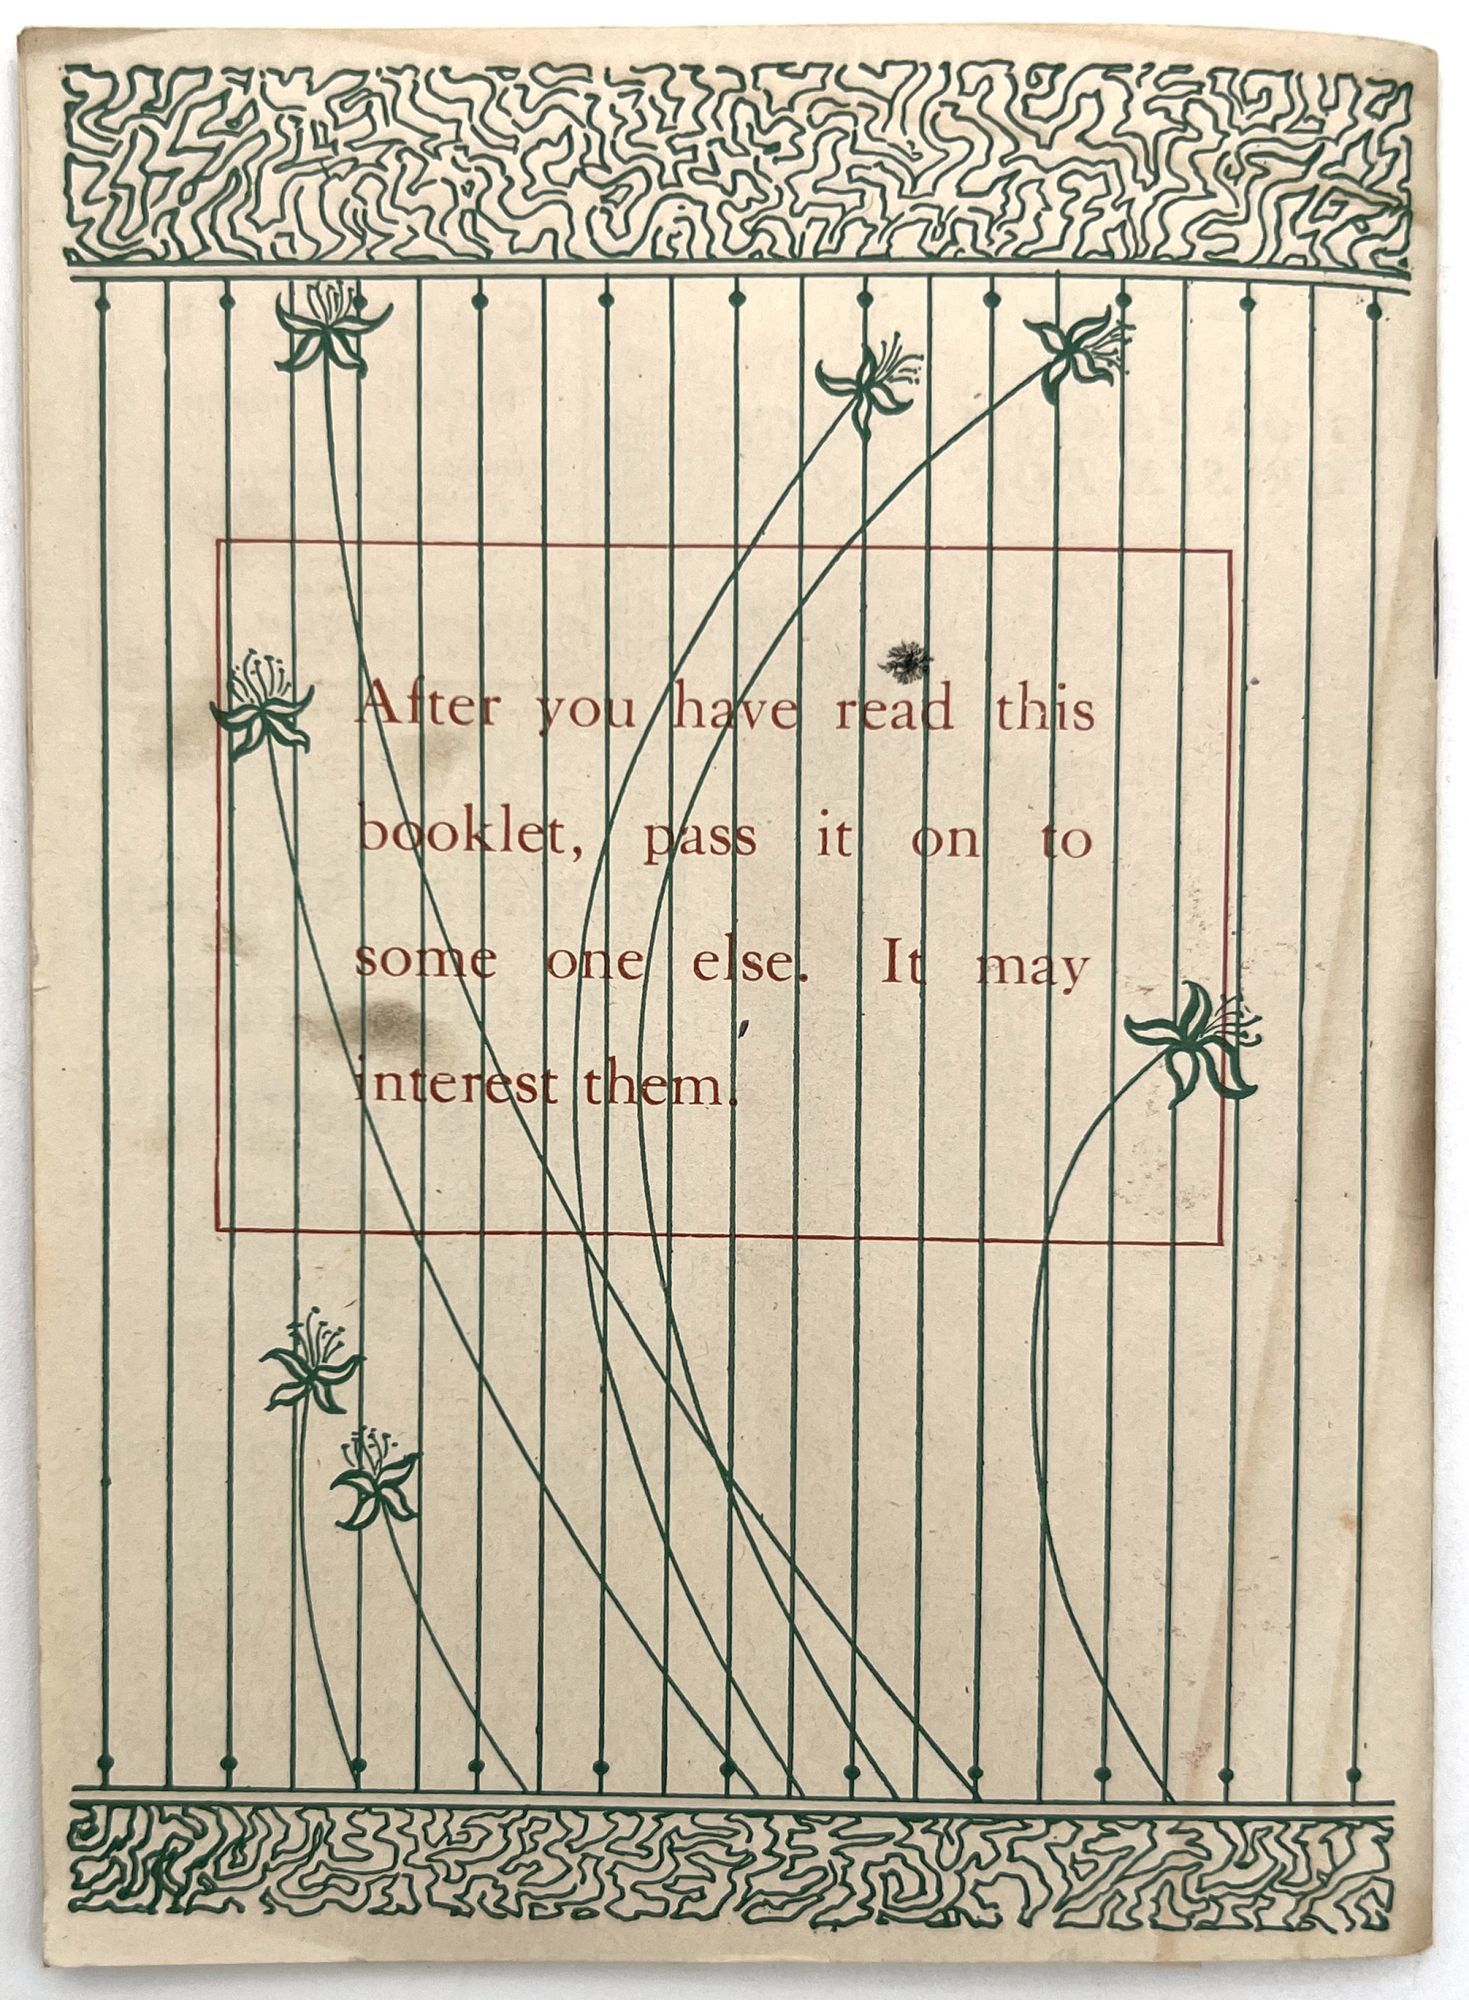 After you have read this
booklet, pass it on to
some one else. It may
interest them.